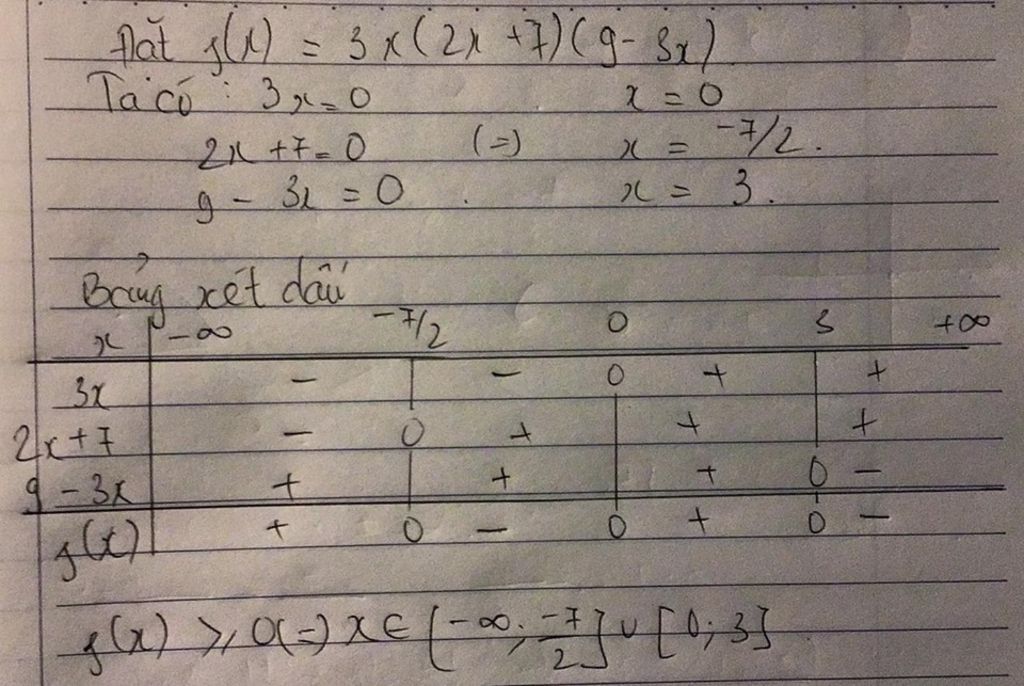 Đặt f(x) = 3x(2x+7)(9-3x)
Ta có: 3x=0 x=0
2x+7=0 (=) x = -7/2.
9 - 3x = 0. x = 3.
Bảng xét dấu
x -∞ -7/2 0 3 +∞
3x - | - 0 + | +
2x+7 - 0 + | + | +
9-3x + | + | + 0 -
f(x) + 0 - 0 + 0 -
f(x) ⩾ 0 (=) x ∈ [-∞; -7/2] ∪ [0; 3]